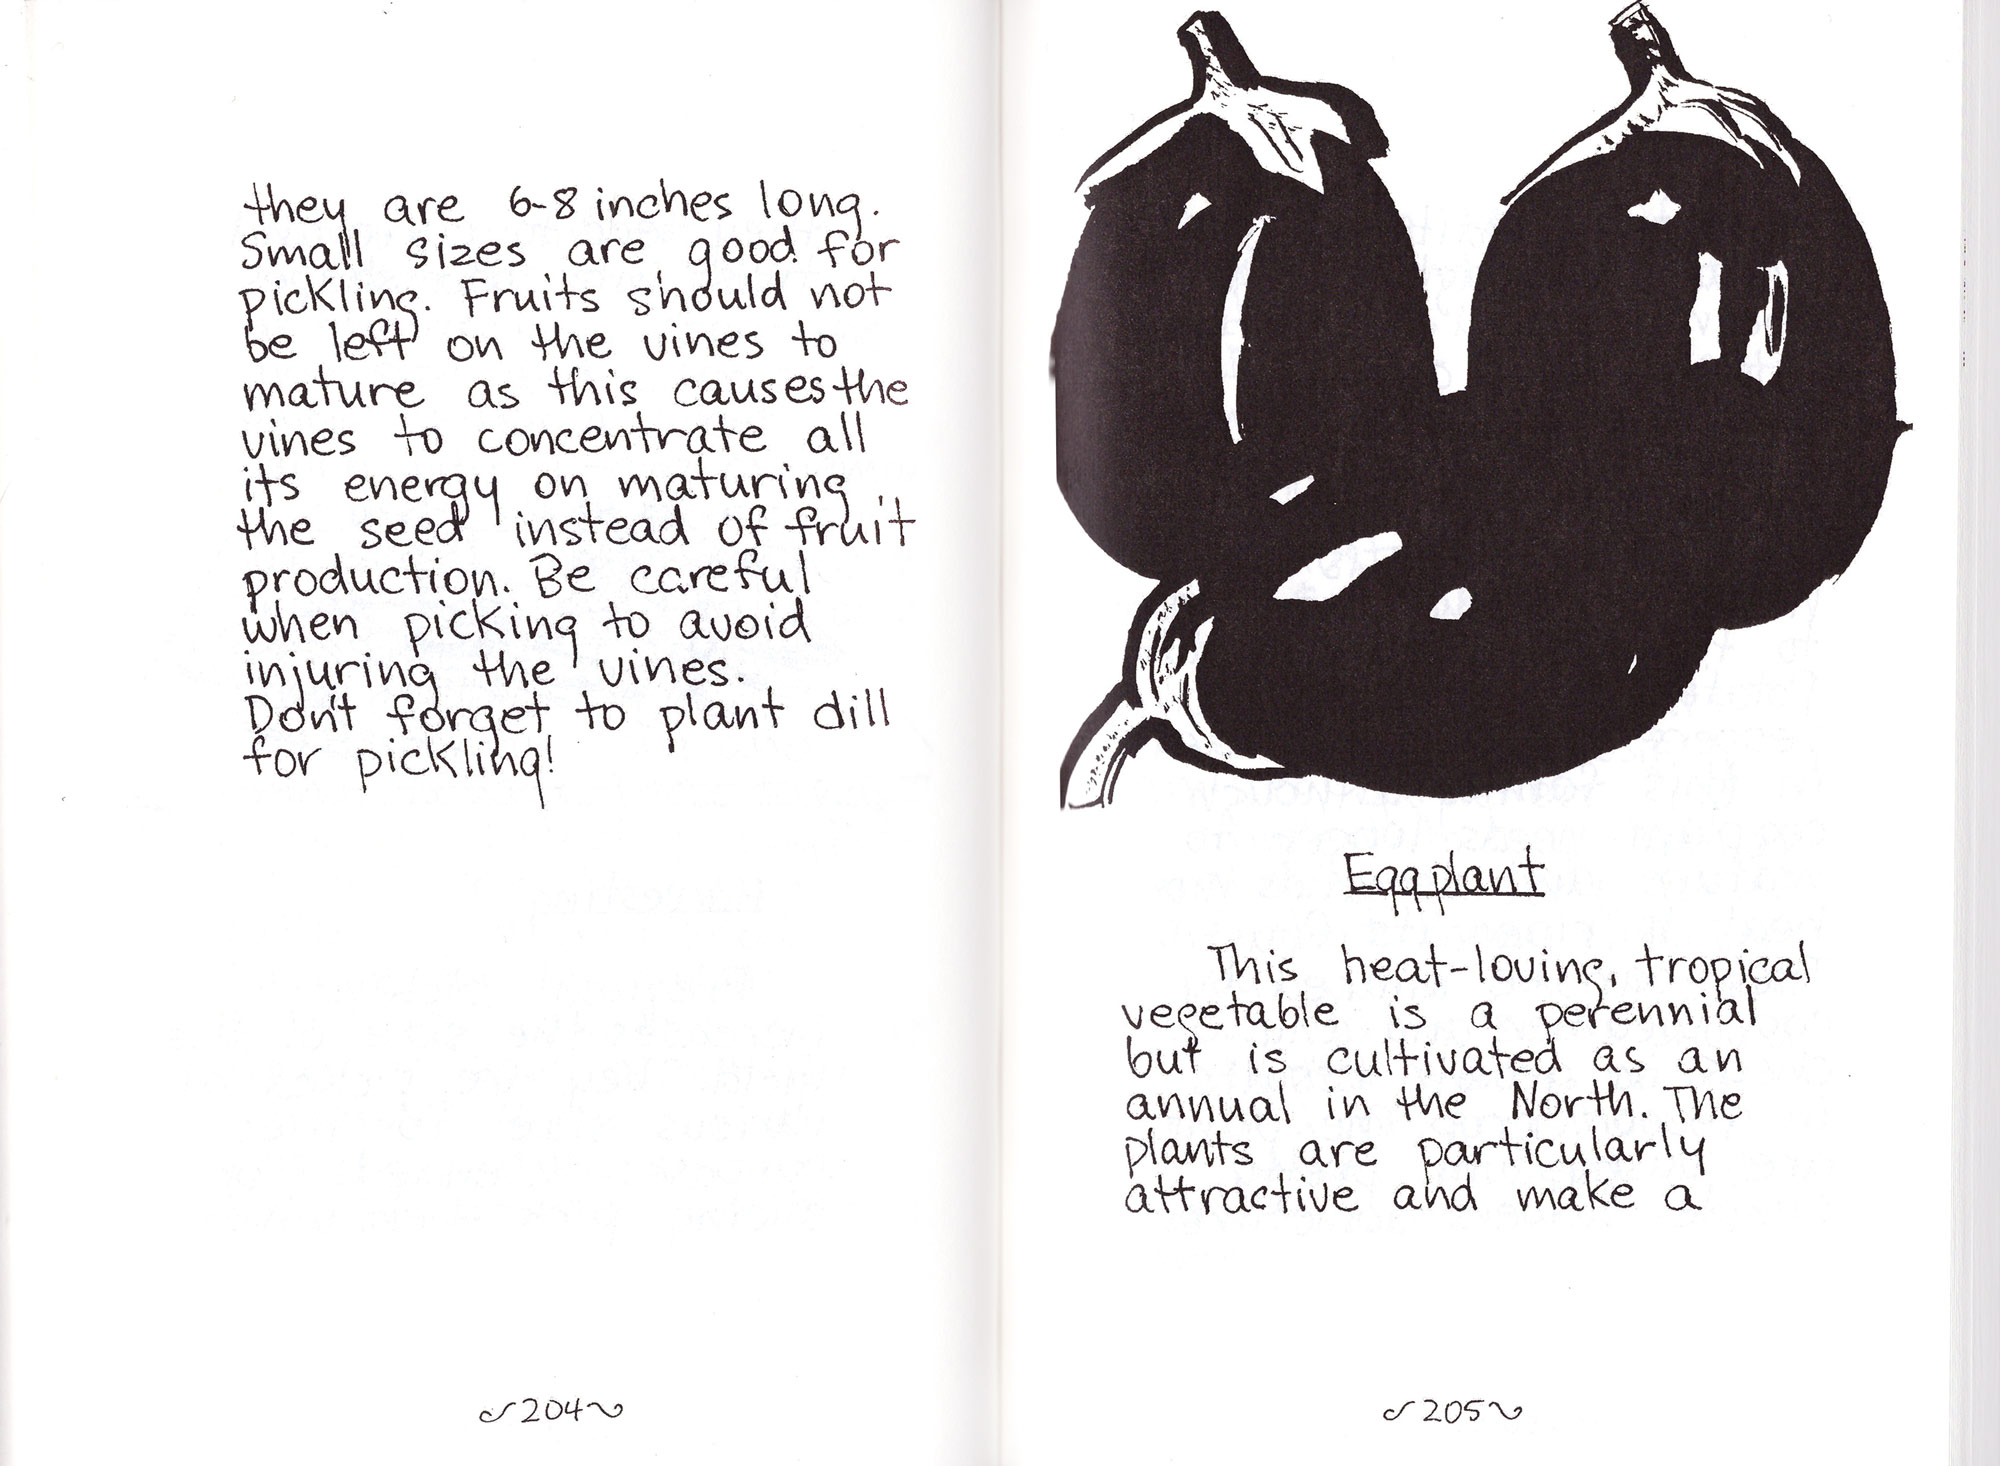 they are 6-8 inches long.
Small sizes are good for
pickling. Fruits should not
be left on the vines to
mature as this causes the
vines to concentrate all
its energy on maturing
the seed instead of fruit
production. Be careful
when picking to avoid
injuring the vines.
Don't forget to plant dill
for pickling!
204
Eggplant
This heat-loving, tropical
vegetable is a perennial
but is cultivated as an
annual in the North. The
plants are particularly
attractive and make a
205